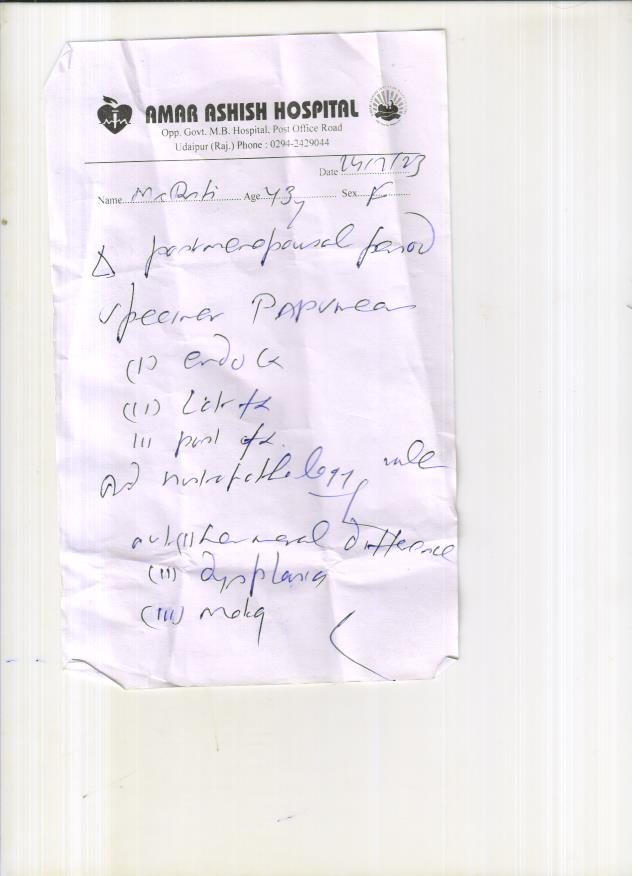 AMAR ASHISH HOSPITAL
Opp. Govt. M.B. Hospital, Post Office Road
Udaipur (Raj.) Phone : 0294-2429044
Date 24/7/23
Name Age 43y Sex F
Δ postmenopausal period
Specimen PAP smear
(I) endo Cx
(II)
III post fx
histopathology rule
out (I) hormonal difference
(II) dysplasia
(III)